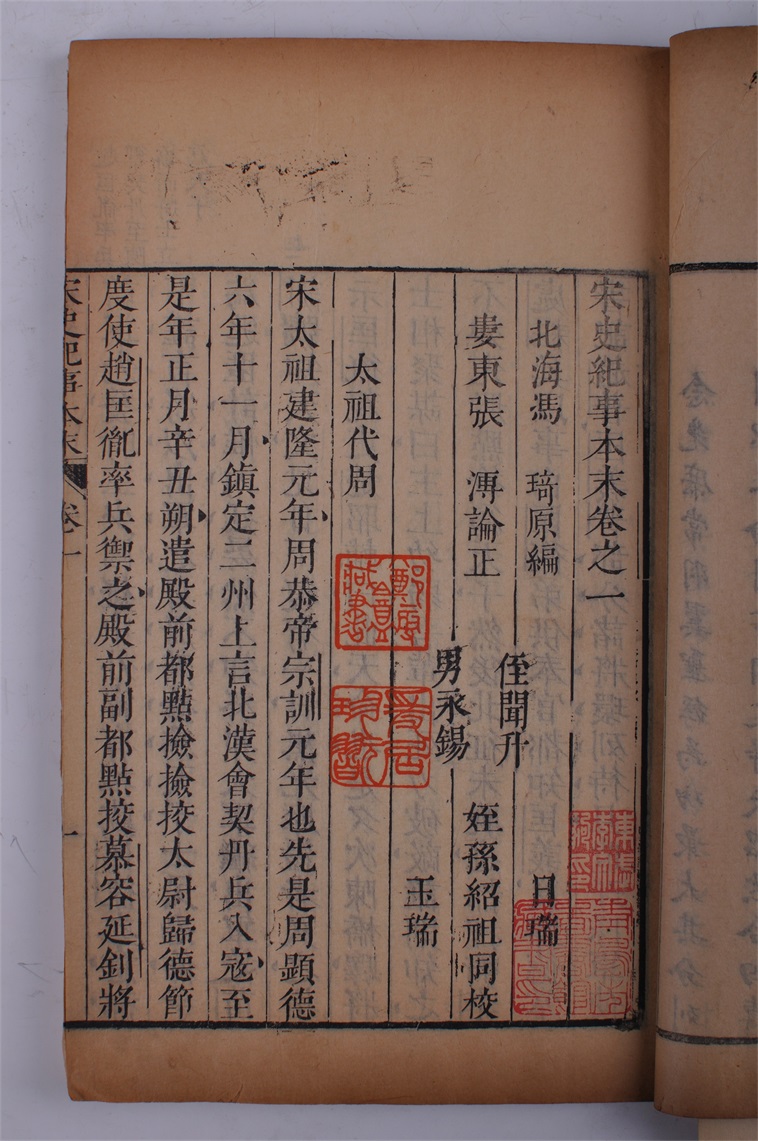 宋史紀事本末卷之一
北海馮　琦原編
婁東張　溥論正
侄聞升　日瑞
姪孫紹祖同校
男永錫
玉瑞
太祖代周
宋太祖建隆元年周恭帝宗訓元年也先是周顯德
六年十一月鎮定二州上言北漢會契丹兵入寇至
是年正月辛丑朔遣殿前都點撿撿挍太尉歸德節
度使趙匡胤率兵禦之殿前副都點挍慕容延釗將
宋史紀事本末　卷一　一